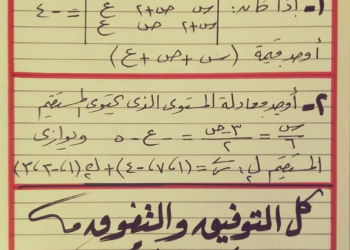 ١- إذا كان: | س ص+٢ ع | = -٤
| س+٢ ص ع |
أوجد قيمة (س+ص+ع)
٢- أوجد معادلة المستوى الذى يحتوى المستقيم
س/٦ = (٣-ص)/٢ = -ع-٥ ويوازى
المستقيم ل٢: ر = (١،٧،-٤)+ك(١،-٣،٣)
كل التوفيق والتفوق